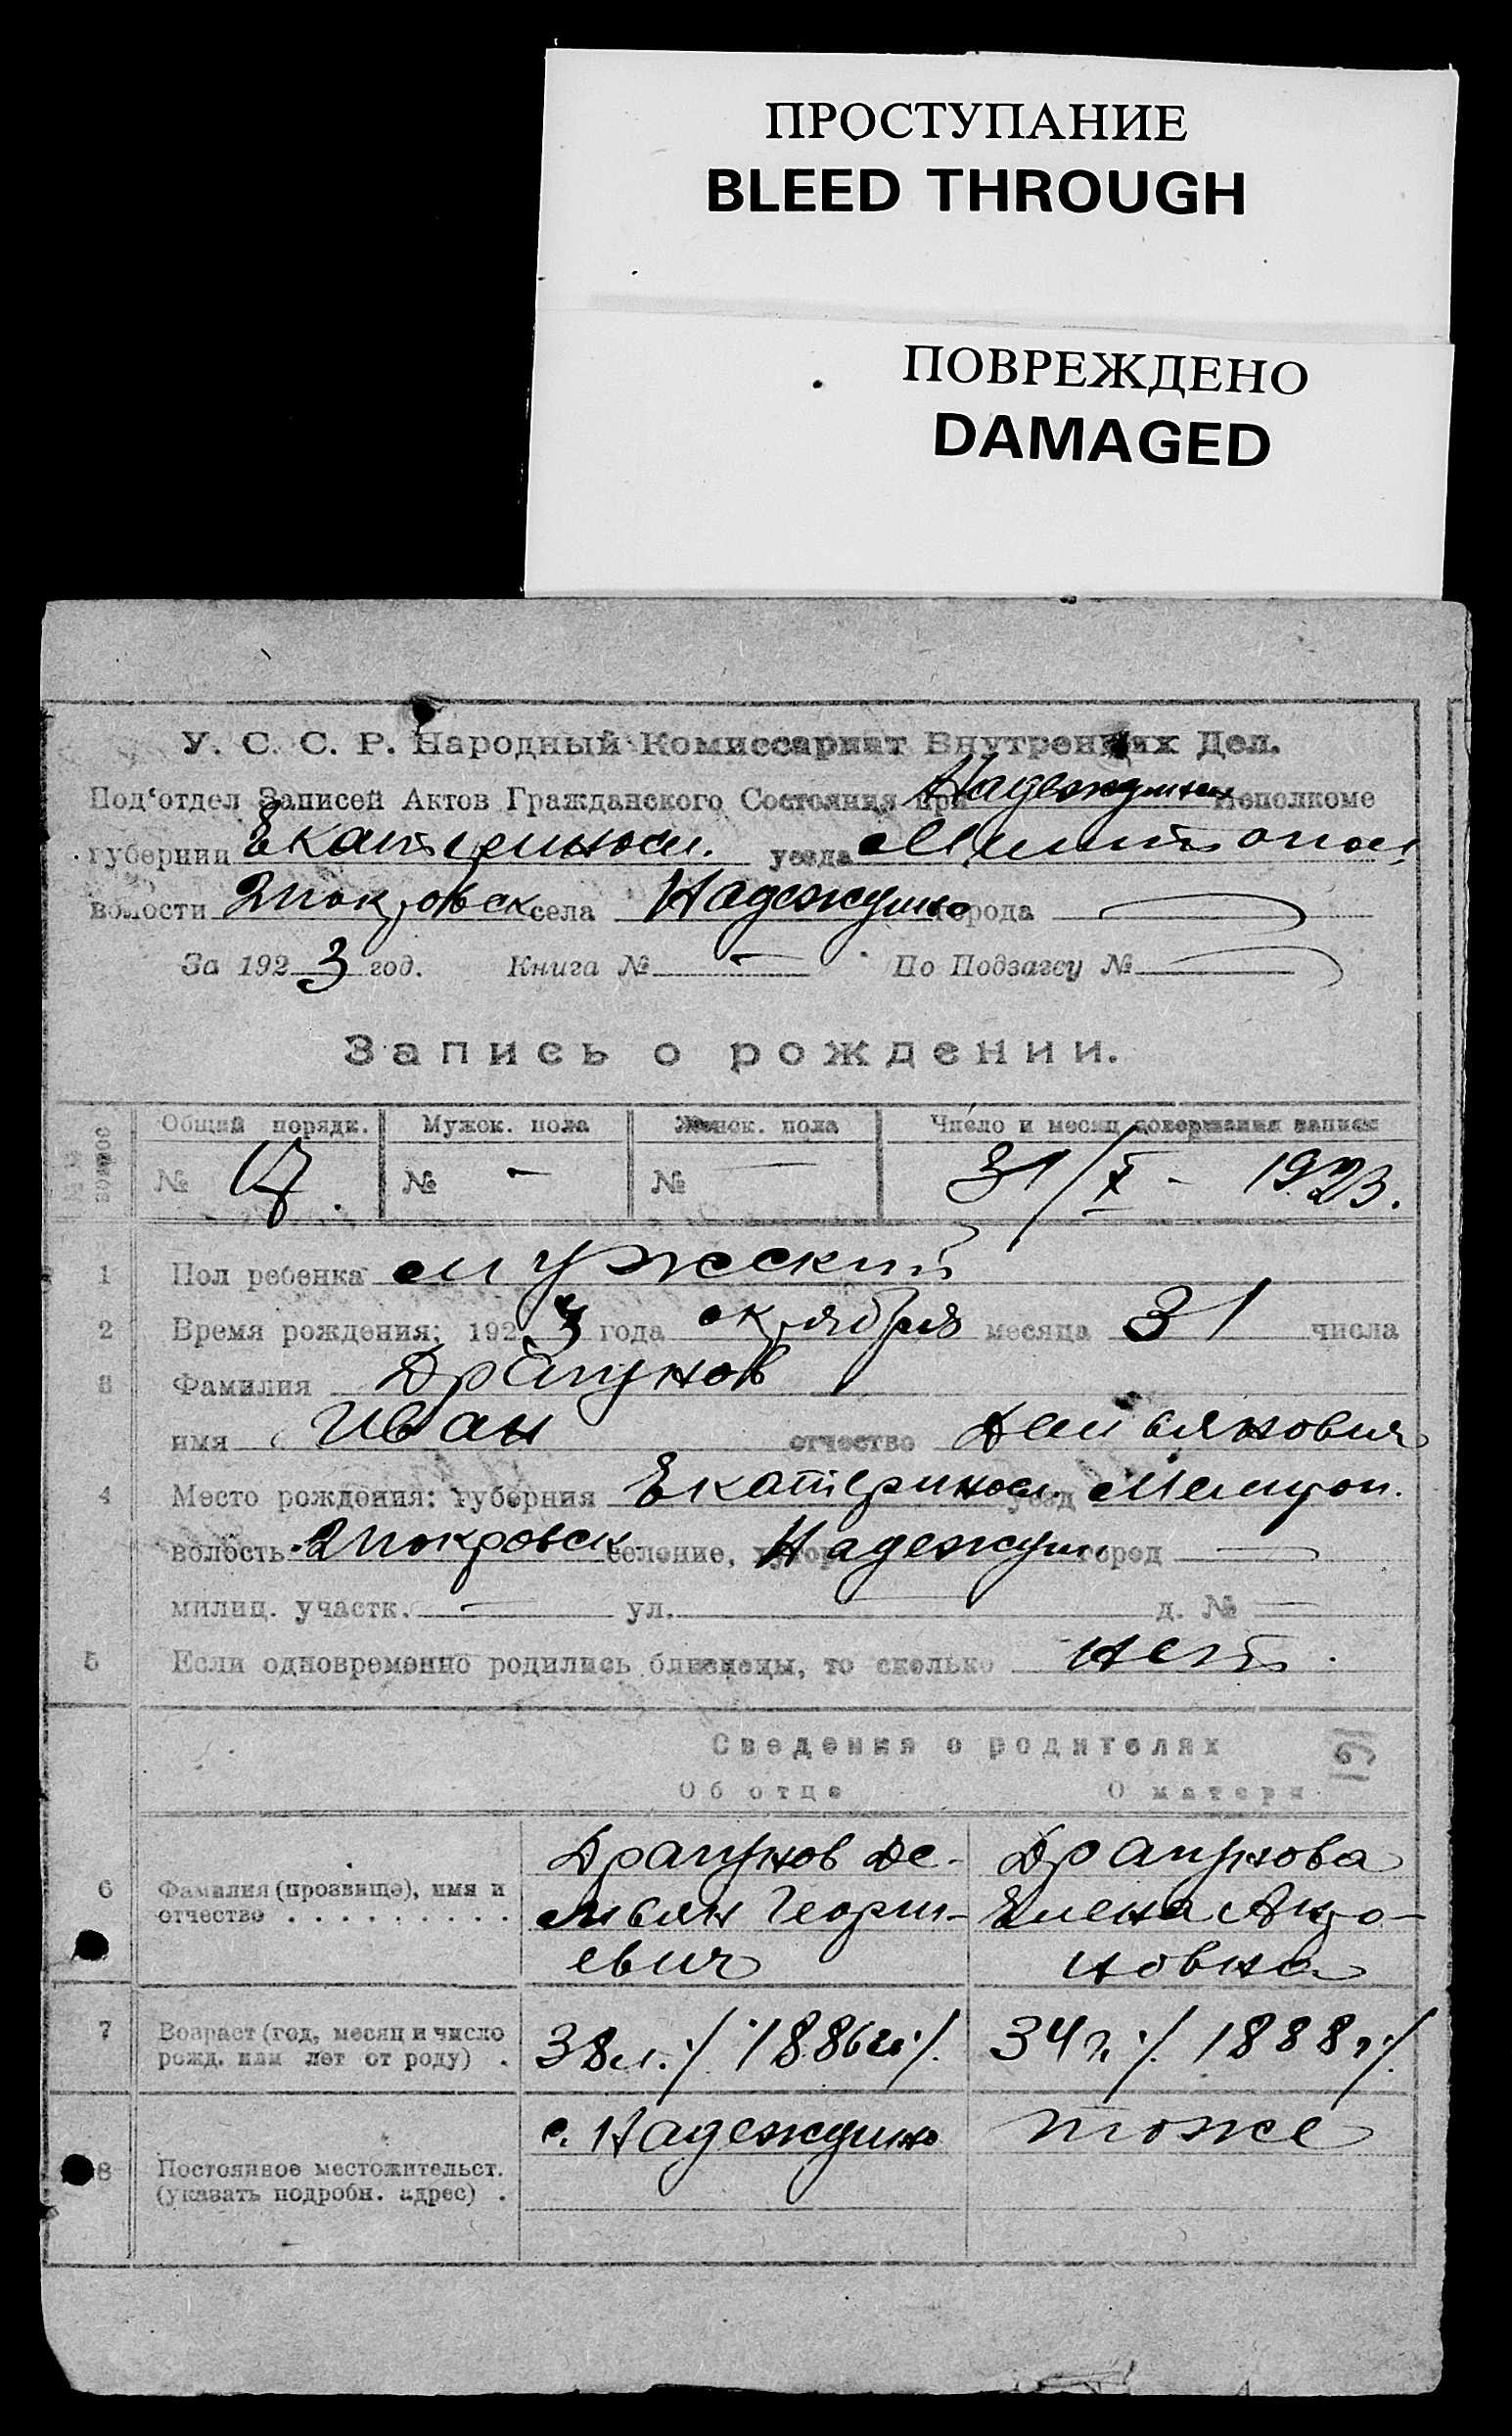 ПРОСТУПАНИЕ
BLEED THROUGH
ПОВРЕЖДЕНО
DAMAGED
У. С. С. Р. Народный Комиссариат Внутренних Дел.
Под‘отдел Записей Актов Гражданского Состояния при Надеждинск Исполкоме
губернии Екатериносл. уезда Мелитопол.
волости 2 Покровск села Надеждино города —
За 1923 год. Книга № — По Подзагсу № —
Запись о рождении.
Общий порядк. Мужск. пола Женск. пола Число и месяц совершения записи
№ № — № — 31/X - 1923.
1 Пол ребенка мужской
2 Время рождения: 1923 года октября месяца 31 числа
3 Фамилия Драгунов
имя Иван отчество Демьянович
4 Место рождения: губерния Екатеринос. уезд Мелитоп.
волость 2 Покровск селение, хутор Надеждин город —
милиц. участк. — ул. д. № —
5 Если одновременно родились близнецы, то сколько нет.
Сведения о родителях
191
Об отце О матери
6 Фамилия (прозвище), имя и отчество . . . . . . . . .
Драгунов Де-
мьян Георги-
евич
Драгунова
Елена
новна
7 Возраст (год, месяц и число рожд. или лет от роду) .
38 л. /1886 г./. 34 г. /1888 г/.
8 Постоянное местожительст. (указать подробн. адрес) .
с. Надеждино тоже